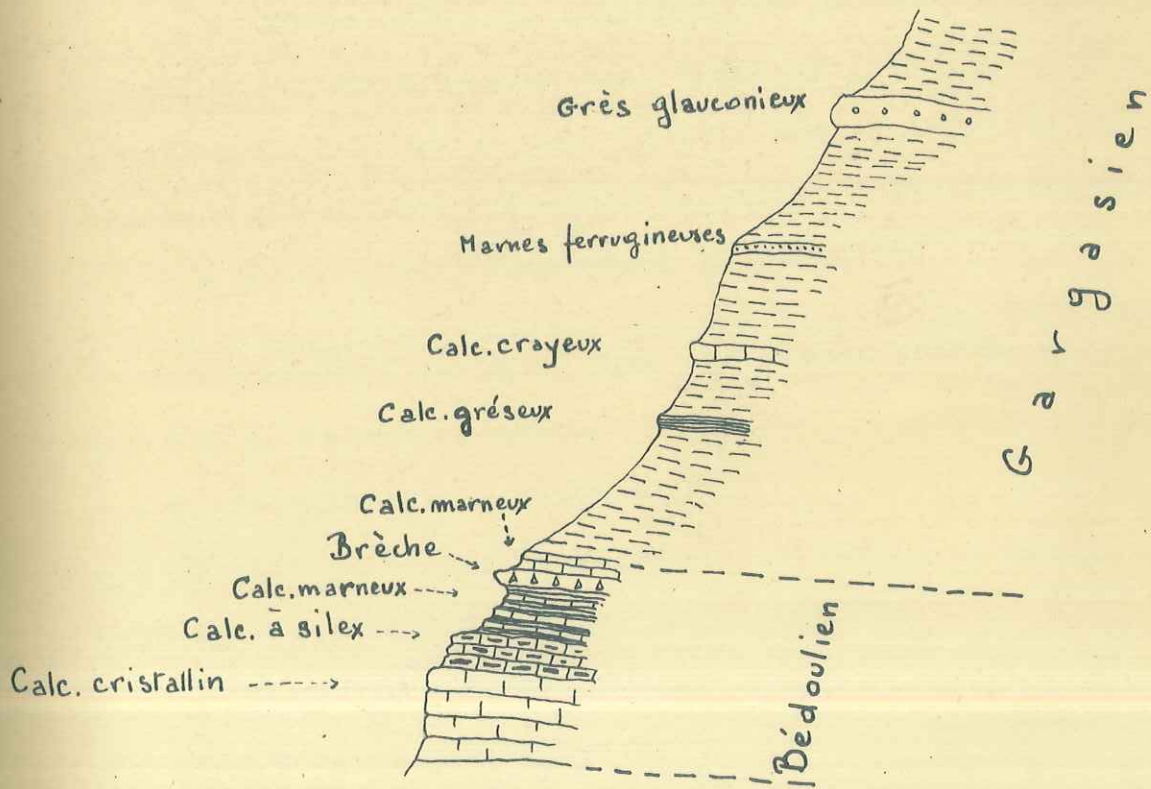 Grès glauconieux
Marnes ferrugineuses
Calc. crayeux
Calc. gréseux
Calc. marneux
Brèche
Calc. marneux
Calc. à silex
Calc. cristallin
Gargasien
Bédoulien